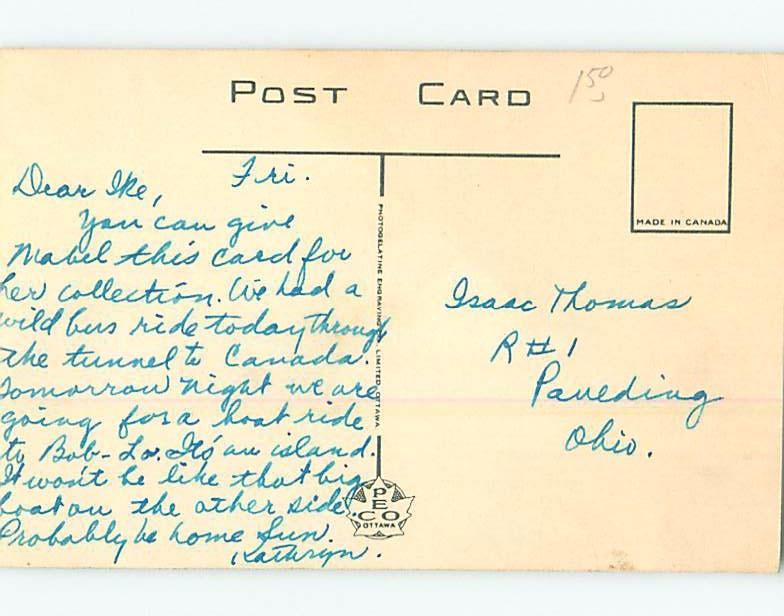 POST CARD
1 50
MADE IN CANADA
Fri.
Dear Ike,
You can give
Mabel this card for
her collection. We had a
wild bus ride today through
the tunnel to Canada.
Tomorrow night we are
going for a boat ride
to Bob-Lo. It's an island.
It won't be like that big
boat on the other side.
Probably be home Sun.
Kathryn.
PHOTOGELATINE ENGRAVING LIMITED, OTTAWA
PECO
OTTAWA
Isaac Thomas
R #1
Paueding
Ohio.